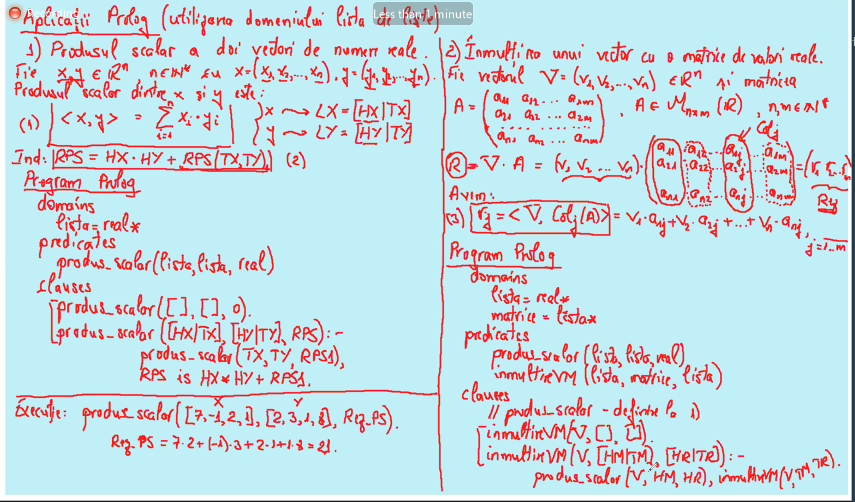 Aplicații Prolog (utilizarea domeniului lista de liste)
Less than 1 minute
1) Produsul scalar a doi vectori de numere reale.
Fie x,y ∈ ℝⁿ, n∈ℕ* cu x=(x₁,x₂,...,xₙ), y=(y₁,y₂,...,yₙ).
Produsul scalar dintre x și y este:
(1) <x,y> = Σᵢ₌₁ⁿ xᵢ·yᵢ } x → LX = [HX|TX]
y → LY = [HY|TY]
Ind: RPS = HX·HY + RPS(TX,TY) (2)
Program Prolog
domains
lista=real*
predicates
produs_scalar(lista,lista,real)
clauses
produs_scalar([],[],0).
produs_scalar([HX|TX],[HY|TY],RPS):-
produs_scalar(TX,TY,RPS1),
RPS is HX*HY+RPS1.
X Y
Execuție: produs_scalar([7,-1,2,1],[2,3,1,8],Rez_PS).
Rez_PS = 7·2+(-1)·3+2·1+1·8=21.
2) Înmulțirea unui vector cu o matrice de valori reale.
Fie vectorul V=(v₁,v₂,...,vₙ) ∈ℝⁿ și matricea
A = (a₁₁ a₁₂ ... a₁ₘ
a₂₁ a₂₂ ... a₂ₘ
...............
aₙ₁ aₙ₂ ... aₙₘ), A∈ℳₙₓₘ(ℝ) n,m∈ℕ*
Colj
R = V·A = (v₁ v₂ ... vₙ)·(a₁₁ a₁₂ ... a₁ⱼ ... a₁ₘ
a₂₁ a₂₂ ... a₂ⱼ ... a₂ₘ
aₙ₁ aₙ₂ ... aₙⱼ ... aₙₘ) = (r₁ r₂ ... rₘ)
Avem:
(3) rⱼ = <V, Colj(A)> = v₁·a₁ⱼ+v₂·a₂ⱼ+...+vₙ·aₙⱼ,
j=1..m
Program Prolog
domains
lista=real*
matrice=lista*
predicates
produs_scalar(lista,lista,real)
inmultireVM(lista,matrice,lista)
clauses
// produs_scalar - definire la 1)
inmultireVM(V,[],[]).
inmultireVM(V,[HM|TM],[HR|TR]):-
produs_scalar(V,HM,HR), inmultireVM(V,TM,TR).